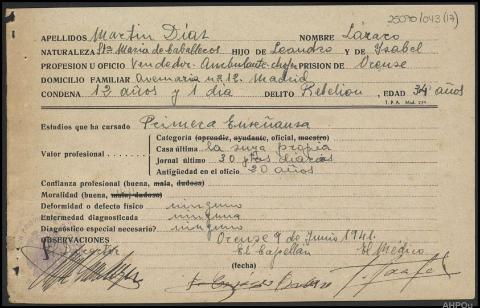 25090/043(17)
APELLIDOS Martin Diaz NOMBRE Lázaro
NATURALEZA Sta Maria de Caballeros HIJO DE Leandro Y DE Ysabel
PROFESION U OFICIO Vendedor-Ambulante-chofer PRISION DE Orense
DOMICILIO FAMILIAR Avemaria nº 12. Madrid
CONDENA 12 años y 1 dia DELITO Rebelion, EDAD 34 años
T. P. A. Mod. 234
Estudios que ha cursado Primera Enseñanza
Valor profesional
Categoría (aprendiz, ayudante, oficial, maestro)
Casa última la suya propia
Jornal último 30 ptas diarias
Antigüedad en el oficio 20 años
Confianza profesional (buena, mala, dudosa)
Moralidad (buena, mala, dudosa)
Deformidad o defecto físico ninguno
Enfermedad diagnosticada ninguna
Diagnóstico especial necesario? ninguno
OBSERVACIONES Orense 9 de Junio 1941.
El Director El Capellán El Médico
(fecha)
AHPOu